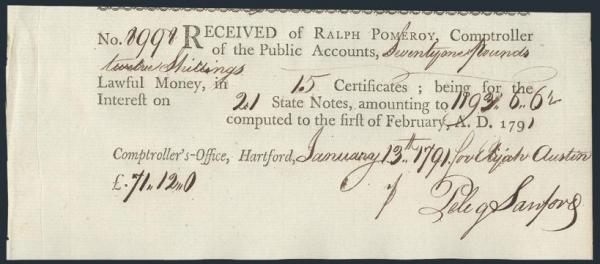 No. 2991 RECEIVED of RALPH POMEROY, Comptroller
of the Public Accounts, Seventy one Pounds
twelve Shillings
Lawful Money, in 15 Certificates; being for the
Interest on 21 State Notes, amounting to 1193. 6. 6½
computed to the first of February, A. D. 1791
Comptroller's-Office, Hartford, January 13th 1791. for Elijah Austin
£. 71. 12. 0
Peleg Sanford